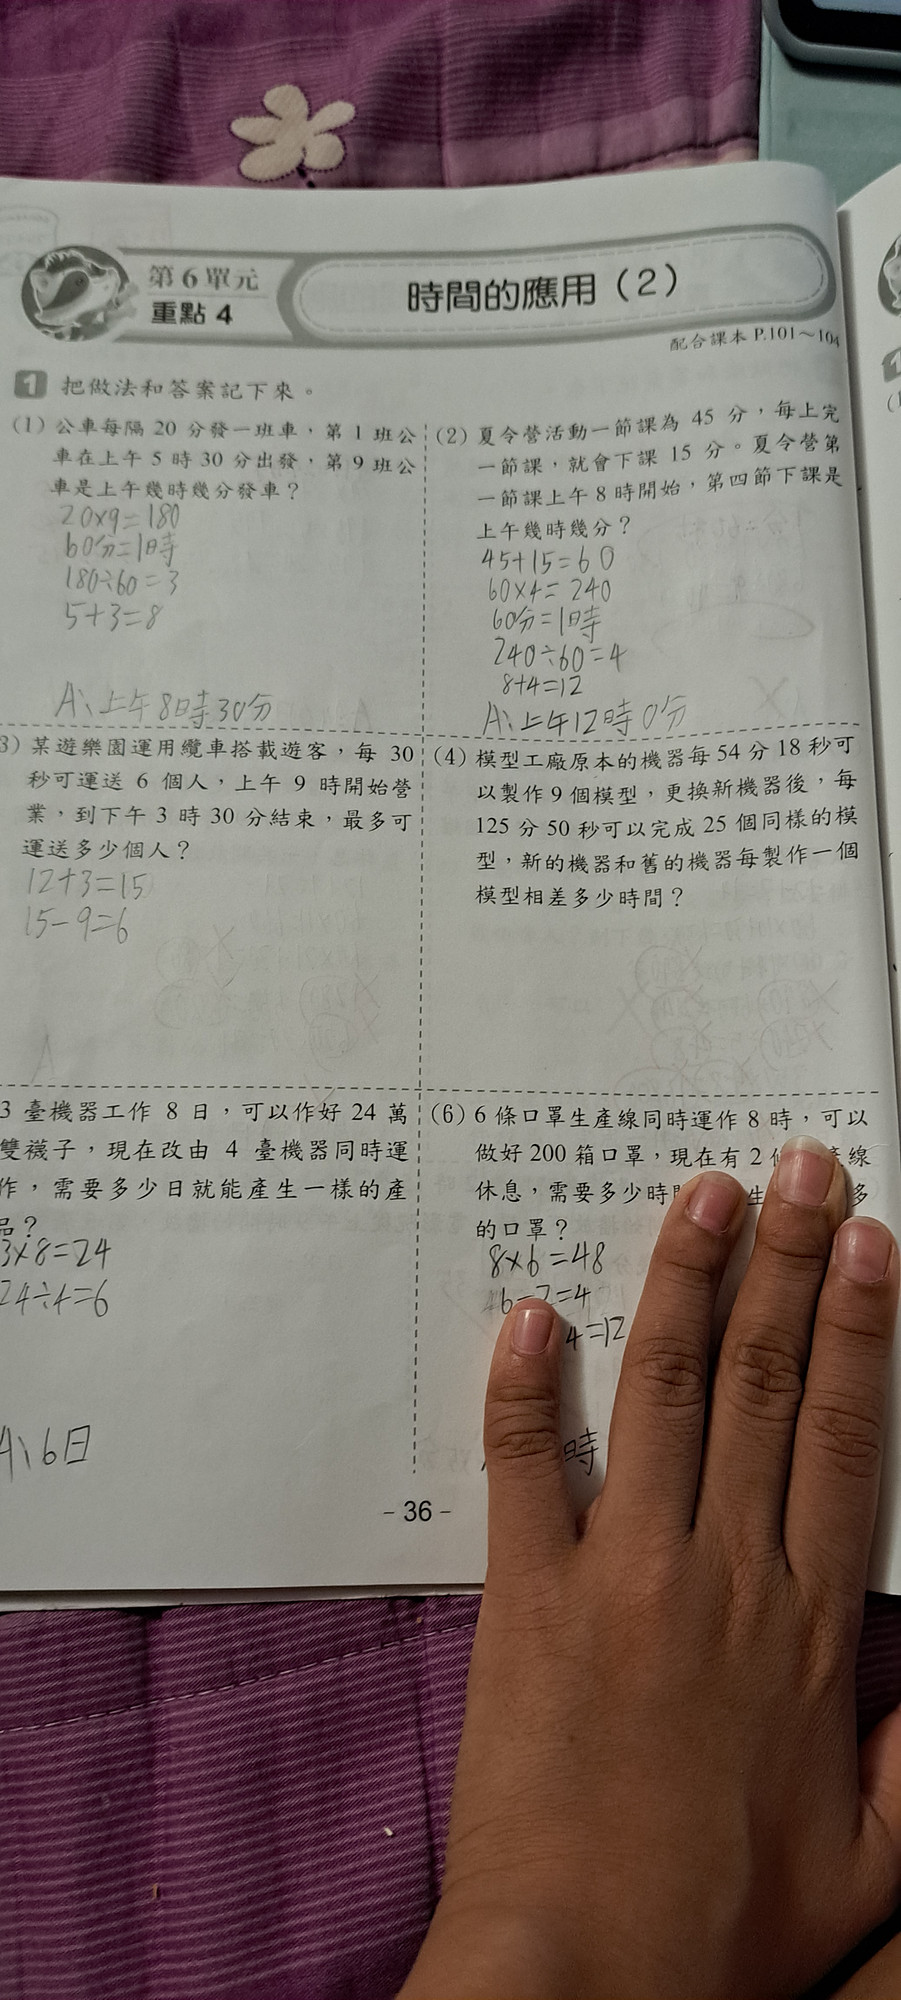 第6單元
重點 4
時間的應用（2）
配合課本 P.101～104
1 把做法和答案記下來。
(1) 公車每隔 20 分發一班車，第 1 班公
車在上午 5 時 30 分出發，第 9 班公
車是上午幾時幾分發車？
20×9=180
60分=1時
180÷60=3
5+3=8
A:上午8時30分
(2) 夏令營活動一節課為 45 分，每上完
一節課，就會下課 15 分。夏令營第
一節課上午 8 時開始，第四節下課是
上午幾時幾分？
45+15=60
60×4=240
60分=1時
240÷60=4
8+4=12
A:上午12時0分
3) 某遊樂園運用纜車搭載遊客，每 30
秒可運送 6 個人，上午 9 時開始營
業，到下午 3 時 30 分結束，最多可
運送多少個人？
12+3=15
15-9=6
(4) 模型工廠原本的機器每 54 分 18 秒可
以製作 9 個模型，更換新機器後，每
125 分 50 秒可以完成 25 個同樣的模
型，新的機器和舊的機器每製作一個
模型相差多少時間？
3 臺機器工作 8 日，可以作好 24 萬
雙襪子，現在改由 4 臺機器同時運
作，需要多少日就能產生一樣的產
品？
3×8=24
24÷4=6
A:6日
(6) 6 條口罩生產線同時運作 8 時，可以
做好 200 箱口罩，現在有 2 產線
休息，需要多少時 生 多
的口罩？
8×6=48
6-2=4
4=12
時
- 36 -